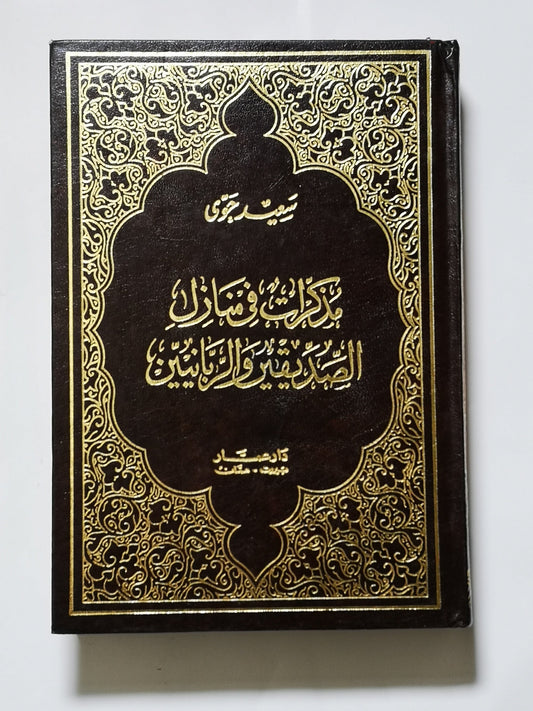 سَعِيد حَوّى
مُذكّراتٌ في مَنازِلِ
الصِّدِّيقينَ وَالرَّبَّانيِّينَ
دَار عمّار
بيروت - عمّان